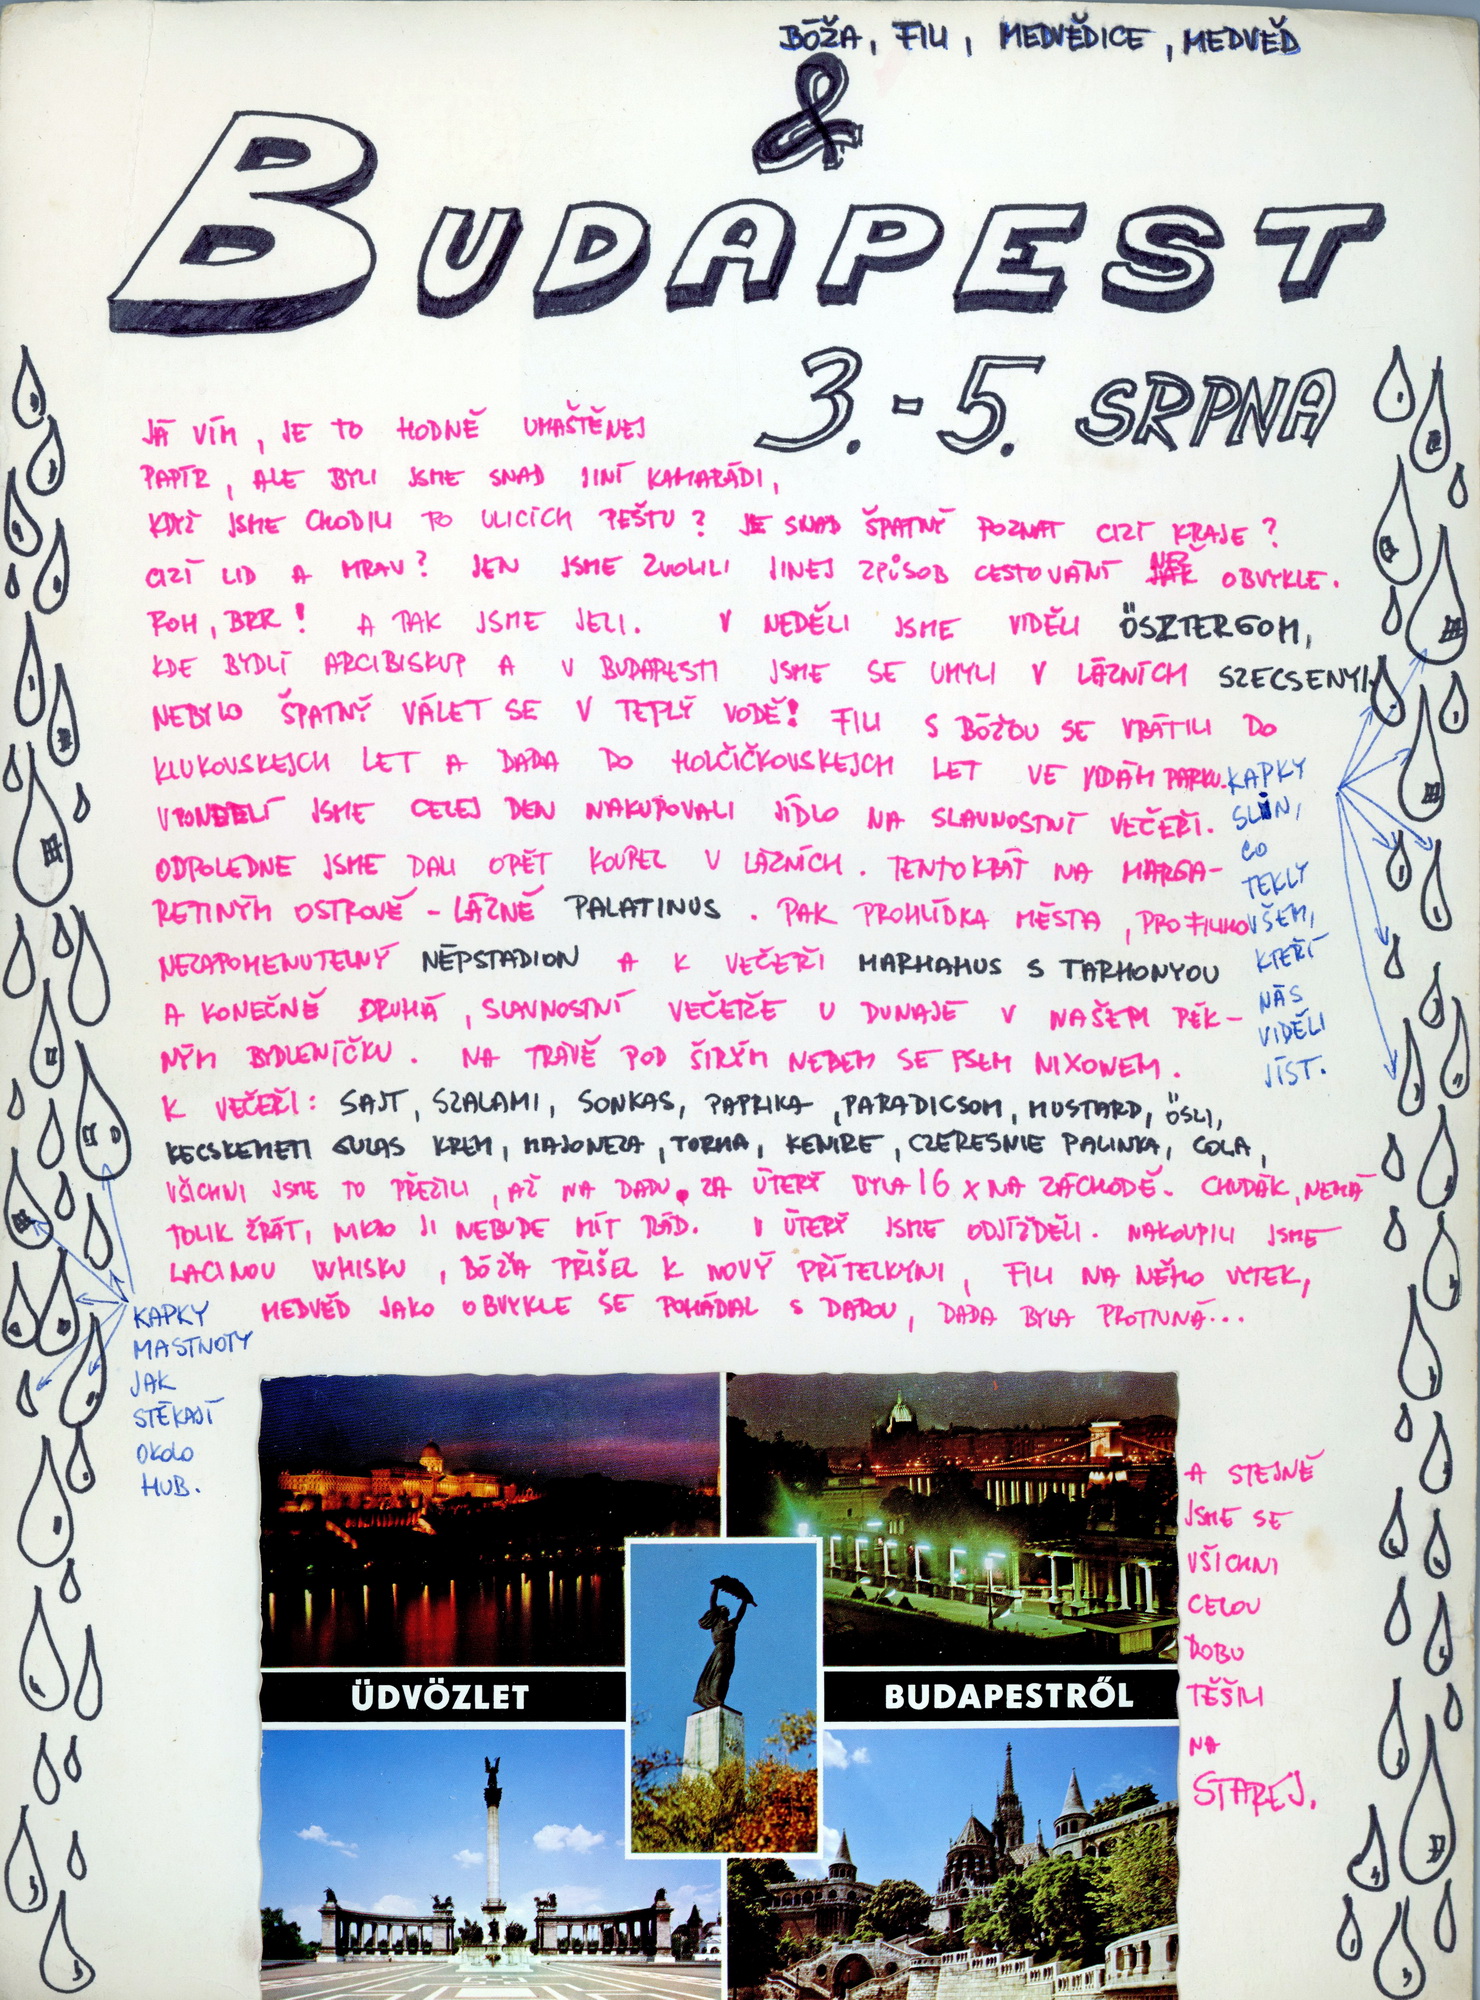 BÓŽA, FILI, MEDVĚDICE, MEDVĚD
&
BUDAPEST
3.-5. SRPNA
JÁ VÍM, JE TO HODNĚ UMAŠTĚNEJ
PAPÍR, ALE BYLI JSME SNAD JINÍ KAMARÁDI,
KDYŽ JSME CHODILI PO ULICÍCH PEŠTU? JE SNAD ŠPATNÝ POZNAT CIZÍ KRAJE?
CIZÍ LID A MRAV? JEN JSME ZVOLILI JINEJ ZPŮSOB CESTOVÁNÍ NEŽ OBVYKLE.
ROH, BRR! A TAK JSME JELI. V NEDĚLI JSME VIDĚLI ÖSZTERGOM,
KDE BYDLÍ ARCIBISKUP A V BUDAPESTI JSME SE UMYLI V LÁZNÍCH SZECSENYI,
NEBYLO ŠPATNÝ VÁLET SE V TEPLÝ VODĚ! FILI S BÓŽOU SE VRÁTILI DO
KLUKOVSKEJCH LET A DADA DO HOLČIČKOVSKEJCH LET VE VIDÁM PARKU.
V PONDELÍ JSME CELEJ DEN NAKUPOVALI JÍDLO NA SLAVNOSTNÍ VEČEŘI.
ODPOLEDNE JSME DALI OPĚT KOUPEL V LÁZNÍCH. TENTOKRÁT NA MARGA-
RETINÝM OSTROVĚ - LÁZNĚ PALATINUS. PAK PROHLÍDKA MĚSTA, PRO FILIHO
NEZAPOMENUTELNÝ NÉPSTADION A K VEČEŘI MARHAHUS S TARHONYOU
A KONEČNĚ DRUHÁ, SLAVNOSTNÍ VEČEŘE U DUNAJE V NAŠEM PĚK-
NÝM BYDLENÍČKU. NA TRÁVĚ POD ŠIRÝM NEBEM SE PSEM NIXONEM.
K VEČEŘI: SAJT, SZALAMI, SONKAS, PAPRIKA, PARADICSOM, MUSTARD, ÖSLI,
KECSKEMETI GULAS KREM, MAJONEZA, TORMA, KENIRE, CZERESNIE PALINKA, COLA,
VŠICHNI JSME TO PŘEŽILI, AŽ NA DADU. ZA ÚTERÝ BYLA 16 X NA ZÁCHODĚ. CHUDÁK, NEMÁ
TOLIK ŽRÁT, NIKDO JI NEBUDE MÍT RÁD. V ÚTERÝ JSME ODJÍŽDĚLI. NAKOUPILI JSME
LACINOU WHISKU, BÓŽA PŘIŠEL K NOVÝ PŘÍTELKYNI, FILI NA NĚHO VYTEK,
MEDVĚD JAKO OBVYKLE SE POHÁDAL S DADOU, DADA BYLA PROTIVNÁ...
KAPKY
SLIN,
CO
TEKLY
VŠEM,
KTEŘÍ
NÁS
VIDĚLI
JÍST.
KAPKY
MASTNOTY
JAK
STÉKAJÍ
OKOLO
HUB.
A STEJNĚ
JSME SE
VŠICHNI
CELOU
DOBU
TĚŠILI
NA
STAREJ.
ÜDVÖZLET
BUDAPESTRŐL